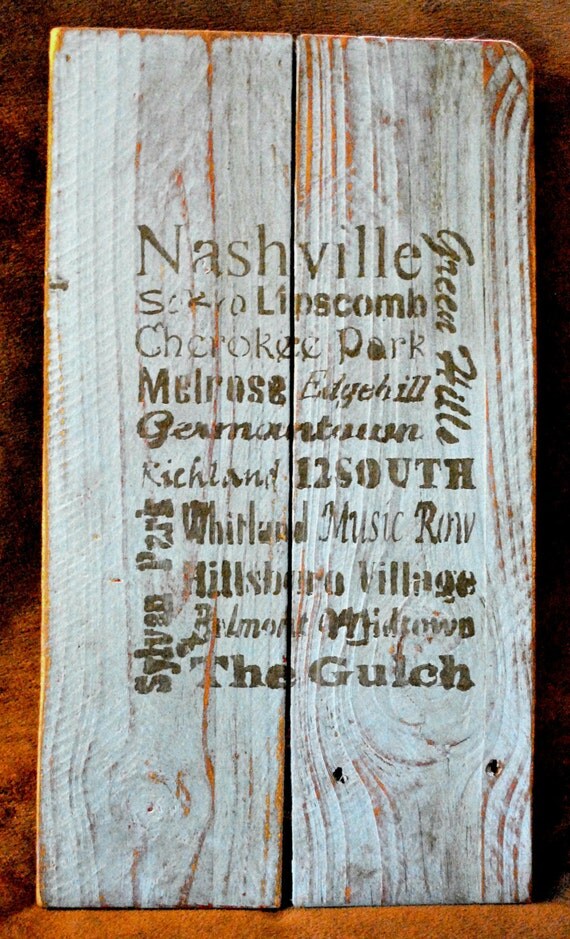 Nashville
Green Hills
SoBro Lipscomb
Cherokee Park
Melrose Edgehill
Germantown
Richland 12SOUTH
Sylvan Park
Whitland Music Row
Hillsboro Village
Belmont Midtown
The Gulch